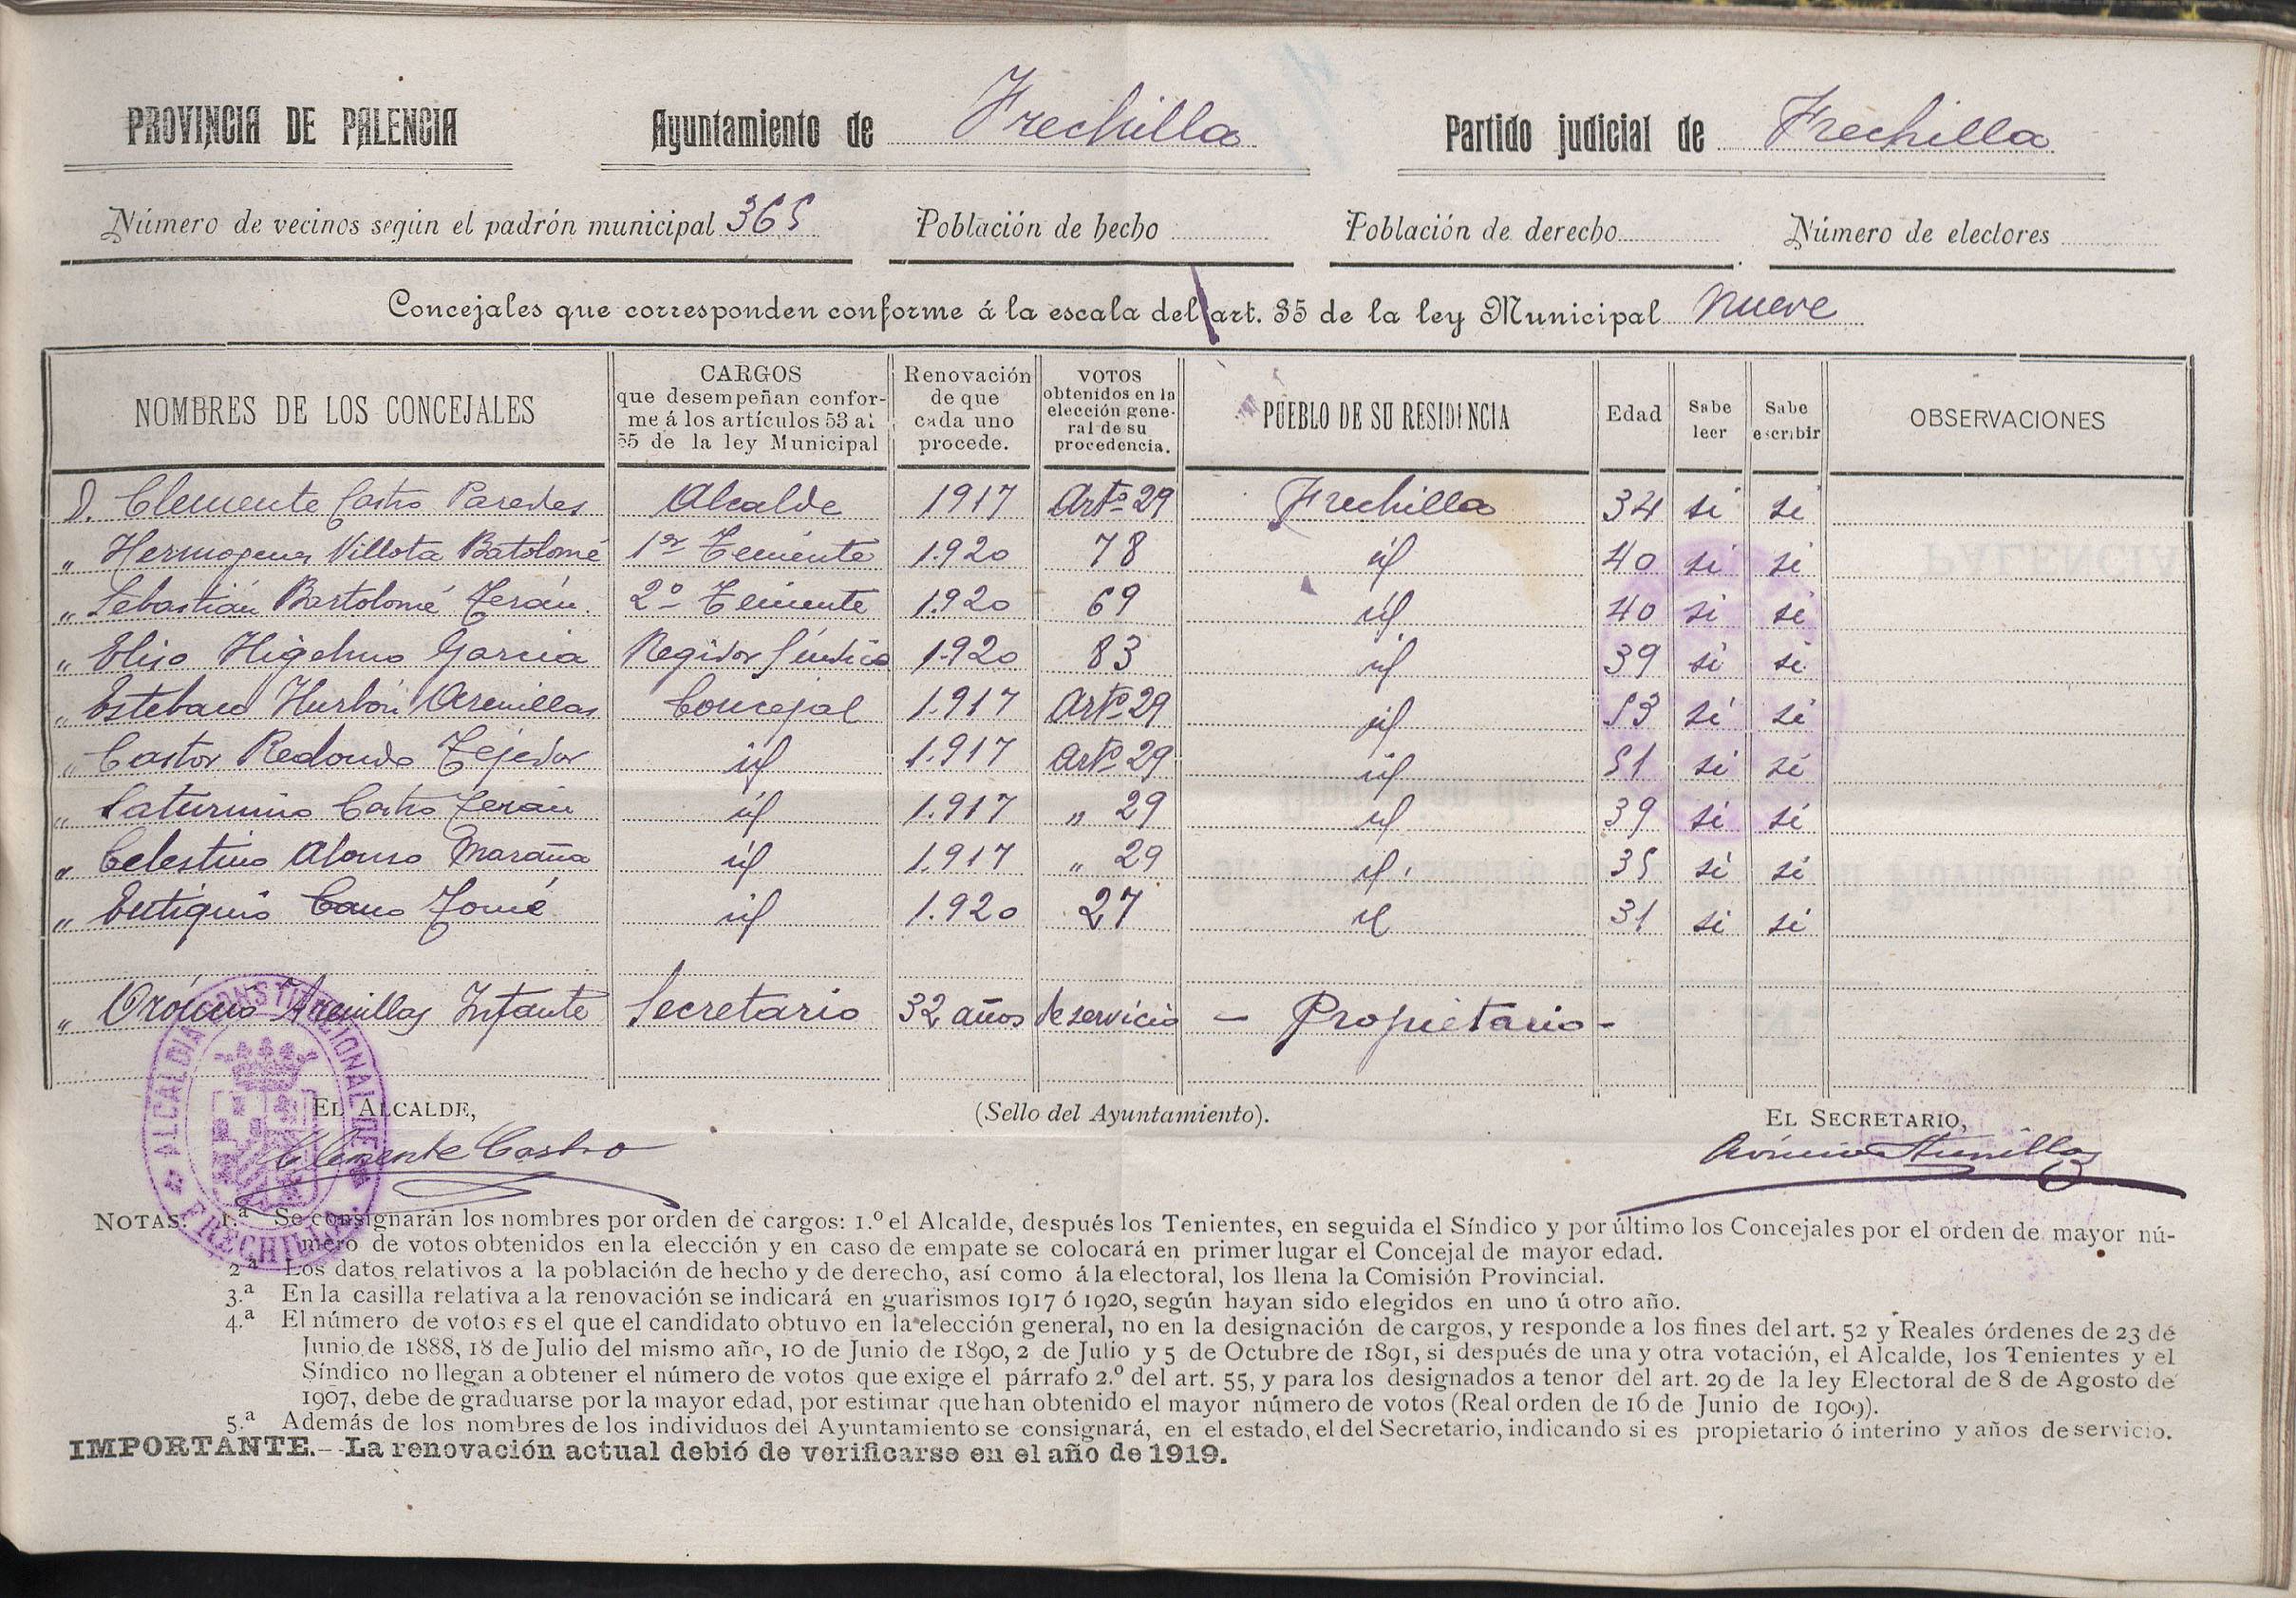 PROVINCIA DE PALENCIA Ayuntamiento de Frechilla Partido judicial de Frechilla
Número de vecinos según el padrón municipal 365 Población de hecho Población de derecho Número de electores
Concejales que corresponden conforme á la escala del art. 35 de la ley Municipal Nueve
NOMBRES DE LOS CONCEJALES
CARGOS
que desempeñan confor-
me á los artículos 53 al
55 de la ley Municipal
Renovación
de que
cada uno
procede.
VOTOS
obtenidos en la
elección gene-
ral de su
procedencia.
PUEBLO DE SU RESIDENCIA
Edad
Sabe
leer
Sabe
escribir
OBSERVACIONES
D. Clemente Castro Paredes Alcalde 1917 Artº 29 Frechilla 34 si si
„ Hermogenes Villota Batolomé 1er Teniente 1.920 78 id 40 si si
„ Sebastián Bartolomé Terán 2º Teniente 1.920 69 id 40 si si
„ Eliso Higelmo Garcia Regidor Síndico 1.920 83 id 39 si si
„ Esteban Hurbón Arenillas Concejal 1.917 Artº 29 id 53 si si
„ Castor Redondo Tejedor id 1.917 Artº 29 id 51 si si
„ Saturnino Castro Terán id 1.917 „ 29 id 39 si si
„ Celestino Alonso Maraña id 1.917 „ 29 id. 35 si si
„ Eutiquio Cano Tomé id 1.920 27 id 31 si si
„ Oróncio Arenillas Infante Secretario 32 años de servicio - Propietario -
ALCALDIA CONSTITUCIONAL DE FRECHILLA
EL ALCALDE, (Sello del Ayuntamiento). EL SECRETARIO,
Clemente Castro Oróncio Arenillas
NOTAS: 1.ª Se consignarán los nombres por orden de cargos: 1.º el Alcalde, después los Tenientes, en seguida el Síndico y por último los Concejales por el orden de mayor nú-
mero de votos obtenidos en la elección y en caso de empate se colocará en primer lugar el Concejal de mayor edad.
2.ª Los datos relativos a la población de hecho y de derecho, así como á la electoral, los llena la Comisión Provincial.
3.ª En la casilla relativa a la renovación se indicará en guarismos 1917 ó 1920, según hayan sido elegidos en uno ú otro año.
4.ª El número de votos es el que el candidato obtuvo en la elección general, no en la designación de cargos, y responde a los fines del art. 52 y Reales órdenes de 23 de
Junio de 1888, 18 de Julio del mismo año, 10 de Junio de 1890, 2 de Julio y 5 de Octubre de 1891, si después de una y otra votación, el Alcalde, los Tenientes y el
Síndico no llegan a obtener el número de votos que exige el párrafo 2.º del art. 55, y para los designados a tenor del art. 29 de la ley Electoral de 8 de Agosto de
1907, debe de graduarse por la mayor edad, por estimar que han obtenido el mayor número de votos (Real orden de 16 de Junio de 1909).
5.ª Además de los nombres de los individuos del Ayuntamiento se consignará, en el estado, el del Secretario, indicando si es propietario ó interino y años de servicio.
IMPORTANTE.--La renovación actual debió de verificarse en el año de 1919.